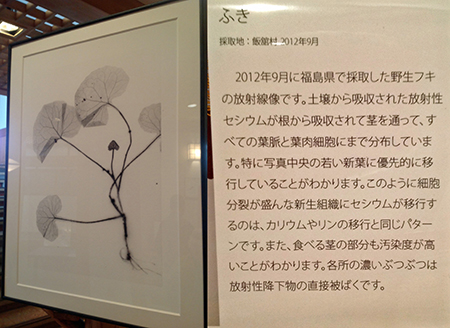 ふき
採取地：飯舘村 2012年9月
2012年9月に福島県で採取した野生フキ
の放射線像です。土壌から吸収された放射性
セシウムが根から吸収されて茎を通って、す
べての葉脈と葉肉細胞にまで分布していま
す。特に写真中央の若い新葉に優先的に移
行していることがわかります。このように細胞
分裂が盛んな新生組織にセシウムが移行す
るのは、カリウムやリンの移行と同じパター
ンです。また、食べる茎の部分も汚染度が高
いことがわかります。各所の濃いぶつぶつは
放射性降下物の直接被ばくです。